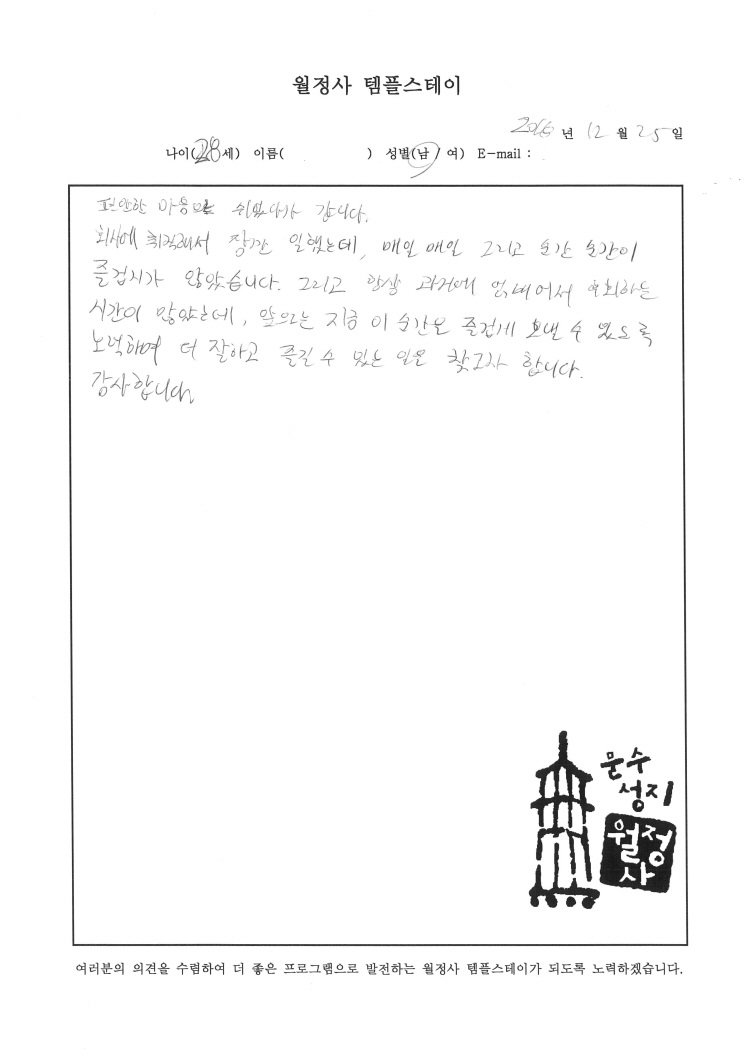 월정사 템플스테이
년 12 월 25 일
나이(28세) 이름( ) 성별(남 / 여) E-mail :
편안한 마음으로 쉬었다가 갑니다.
회사에 취직해서 장간 일했는데, 매일 매일 그리고 순간 순간이
즐겁지가 않았습니다. 그리고 항상 과거에 얽매여서 후회하는
시간이 많았는데, 앞으로는 지금 이 순간을 즐겁게 보낼 수 있도록
노력하며 더 잘하고 즐길 수 있는 일을 찾고자 합니다.
감사합니다.
문수
성지
월정
사
여러분의 의견을 수렴하여 더 좋은 프로그램으로 발전하는 월정사 템플스테이가 되도록 노력하겠습니다.